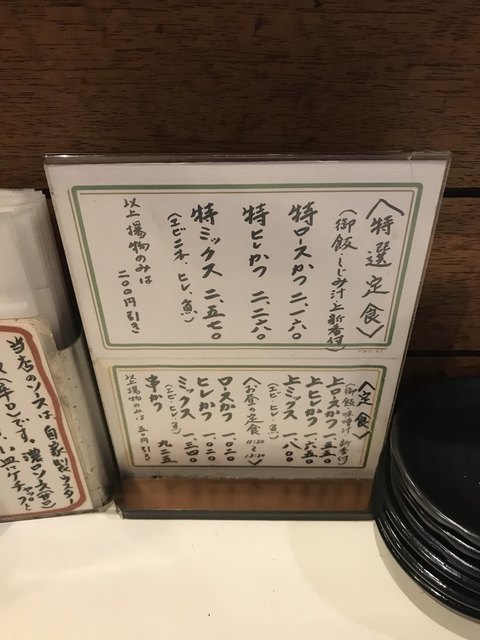 〈特選定食〉
(御飯・しじみ汁上新香付)
特ロースかつ 二、一六〇
特ヒレかつ 二、二六〇
特ミックス 二、五七〇
(エビ二本、ヒレ、魚)
以上揚物のみは
二〇〇円引き
〈定食〉
(御飯 味噌汁 新香付)
上ロースかつ 一、五五〇
上ヒレかつ 一、六五〇
上ミックス 一、八〇〇
(エビ、ヒレ、魚)
〈お昼の定食
ロースかつ 一、〇二〇
ヒレかつ 一、一二〇
ミックス 一、三四〇
(エビ・ヒレ・魚)
串かつ 九二五
以上揚物のみは 五〇円引き
当店のソースは自家製ウスター
(辛口)です。濃口ソース(甘口)